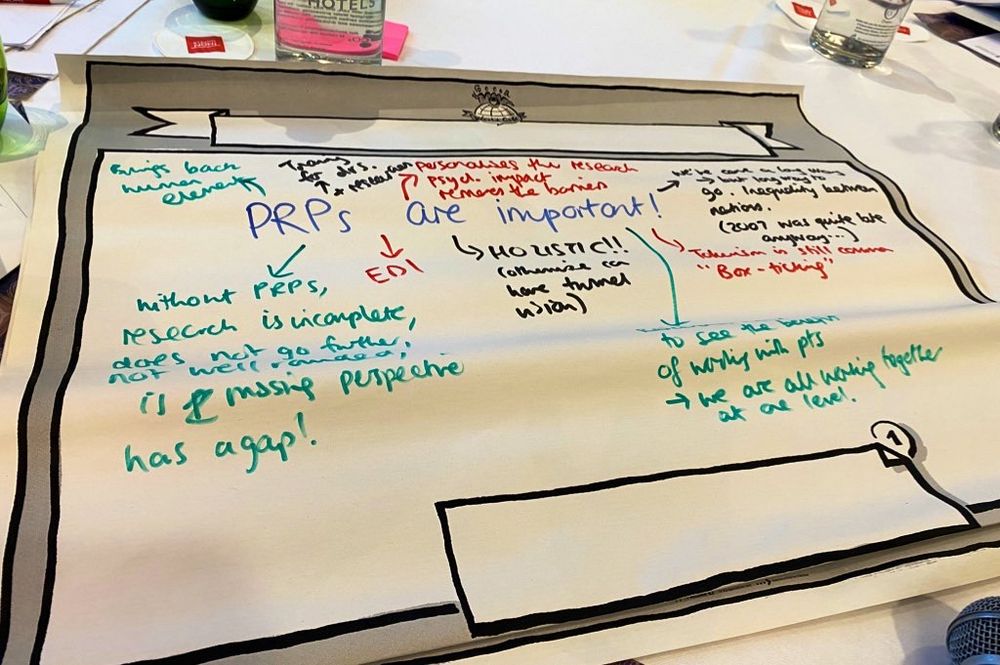 HOTELS
Brings back
human
element
Trains
for drs.
+ researchers
personalises the research
psych. impact
removes the barriers
we've come a long way
→ but long way to
go. Inequality between
nations.
(2007 was quite late
anyway...)
PRPs are important!
EDI
HOLISTIC!!
(otherwise can
have tunnel
vision)
Tokenism is still common
"Box-ticking"
without PRPs,
research is incomplete,
does not go further,
not well rounded,
is missing perspective
has a gap!
to see the benefits
of working with pts
→ we are all working together
at one level.
1